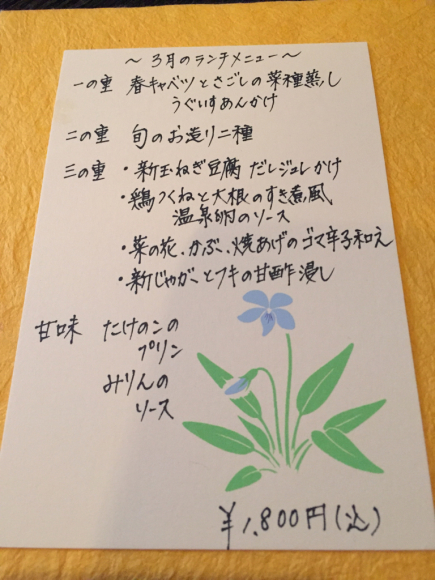 ～3月のランチメニュー～
一の重 春キャベツとさごしの菜種蒸し
うぐいすあんかけ
二の重 旬のお造り二種
三の重 ・新玉ねぎ豆腐 だしジュレかけ
・鶏つくねと大根のすき煮風
温泉卵のソース
・菜の花、かぶ、焼あげのゴマ辛子和え
・新じゃがとフキの甘酢浸し
甘味 たけのこの
プリン
みりんの
ソース
¥1,800円(込)